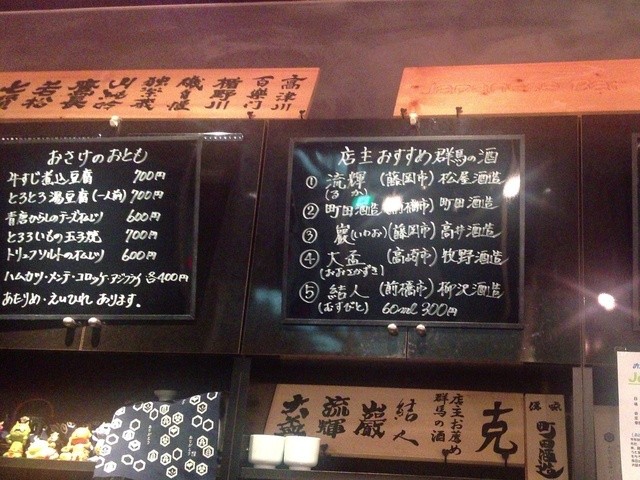 高津川
百楽門
楯野川
磯自慢
独楽蔵
若松
おさけのおとも
牛すじ煮込豆腐 700円
とろとろ湯豆腐(一人前) 700円
青唐からしのチーズねじり 600円
とろろいもの玉子焼 700円
トリュフソルトの 600円
ハムカツ・メンチ・コロッケ・アジフライ 各400円
あたりめ・えいひれ あります。
店主おすすめ群馬の酒
① 流輝 (藤岡市) 松屋酒造
(るか)
② 町田酒造 (前橋市) 町田酒造
③ 巖(いわお) (藤岡市) 高井酒造
④ 大盃 (高崎市) 牧野酒造
(おおさかずき)
⑤ 結人 (前橋市) 柳沢酒造
(むすびと) 60ml 300円
克
店主お薦め
群馬の酒
結人
巌
流輝
大盃
町田酒造